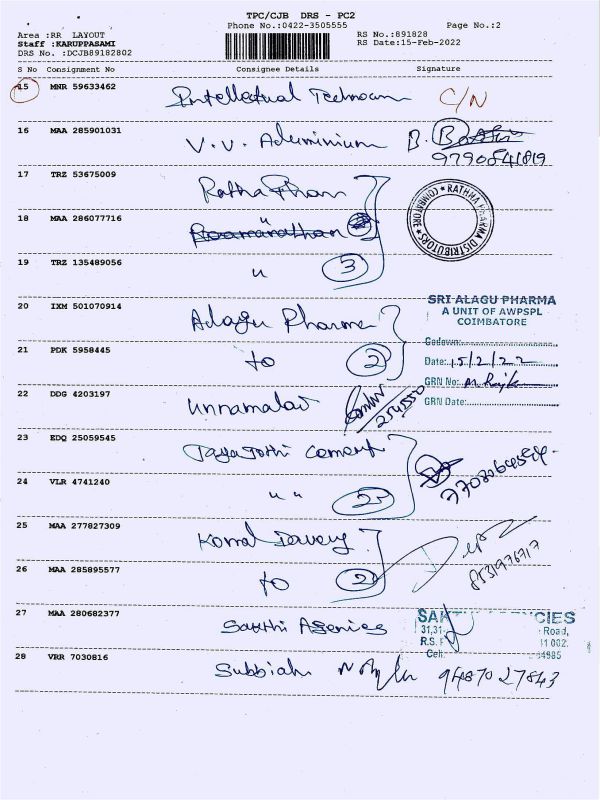 TPC/CJB DRS - PC2
Phone No.:0422-3505555
Page No.:2
Area :RR LAYOUT
RS No.:891828
Staff :KARUPPASAMI
RS Date:15-Feb-2022
DRS No. :DCJB89182802
S No Consignment No Consignee Details Signature
15 MNR 59633462 Intellectual C/N
16 MAA 285901031 V.V. Aluminium B.
9790841819
17 TRZ 53675009 Ratha Pharm
RATHNA PHARMA DISTRIBUTORS * COIMBATORE *
18 MAA 286077716 "
19 TRZ 135489056 " 3
20 IXM 501070914 Alagu Pharma
SRI ALAGU PHARMA
A UNIT OF AWPSPL
COIMBATORE
Godown:
21 PDK 5958445 to 2
Date: 15/2/22
GRN No:
22 DDG 4203197 Unnamalai
GRN Date:
23 EDQ 25059545 Jayajothi Cement
24 VLR 4741240 " " 2
25 MAA 277827309 Komal
26 MAA 285895577 to 2
8531976717
27 MAA 280682377 Sakthi Agenies
SAKT CIES
31,31- Road,
R.S. 1 002.
Cell: 84985
28 VRR 7030816 Subbiah 94870 27843